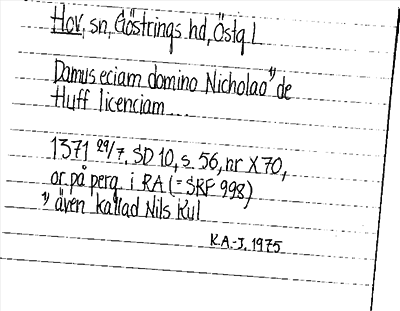 Hov, sn, Göstrings hd, Östg. l
Damus eciam domino Nicholao ¹⁾ de
Huff licenciam...
1371 29/7, SD 10, s. 56, nr X70,
or. på perg. i RA (= SRP 998)
¹⁾ även kallad Nils Kul
K.A-J. 1975